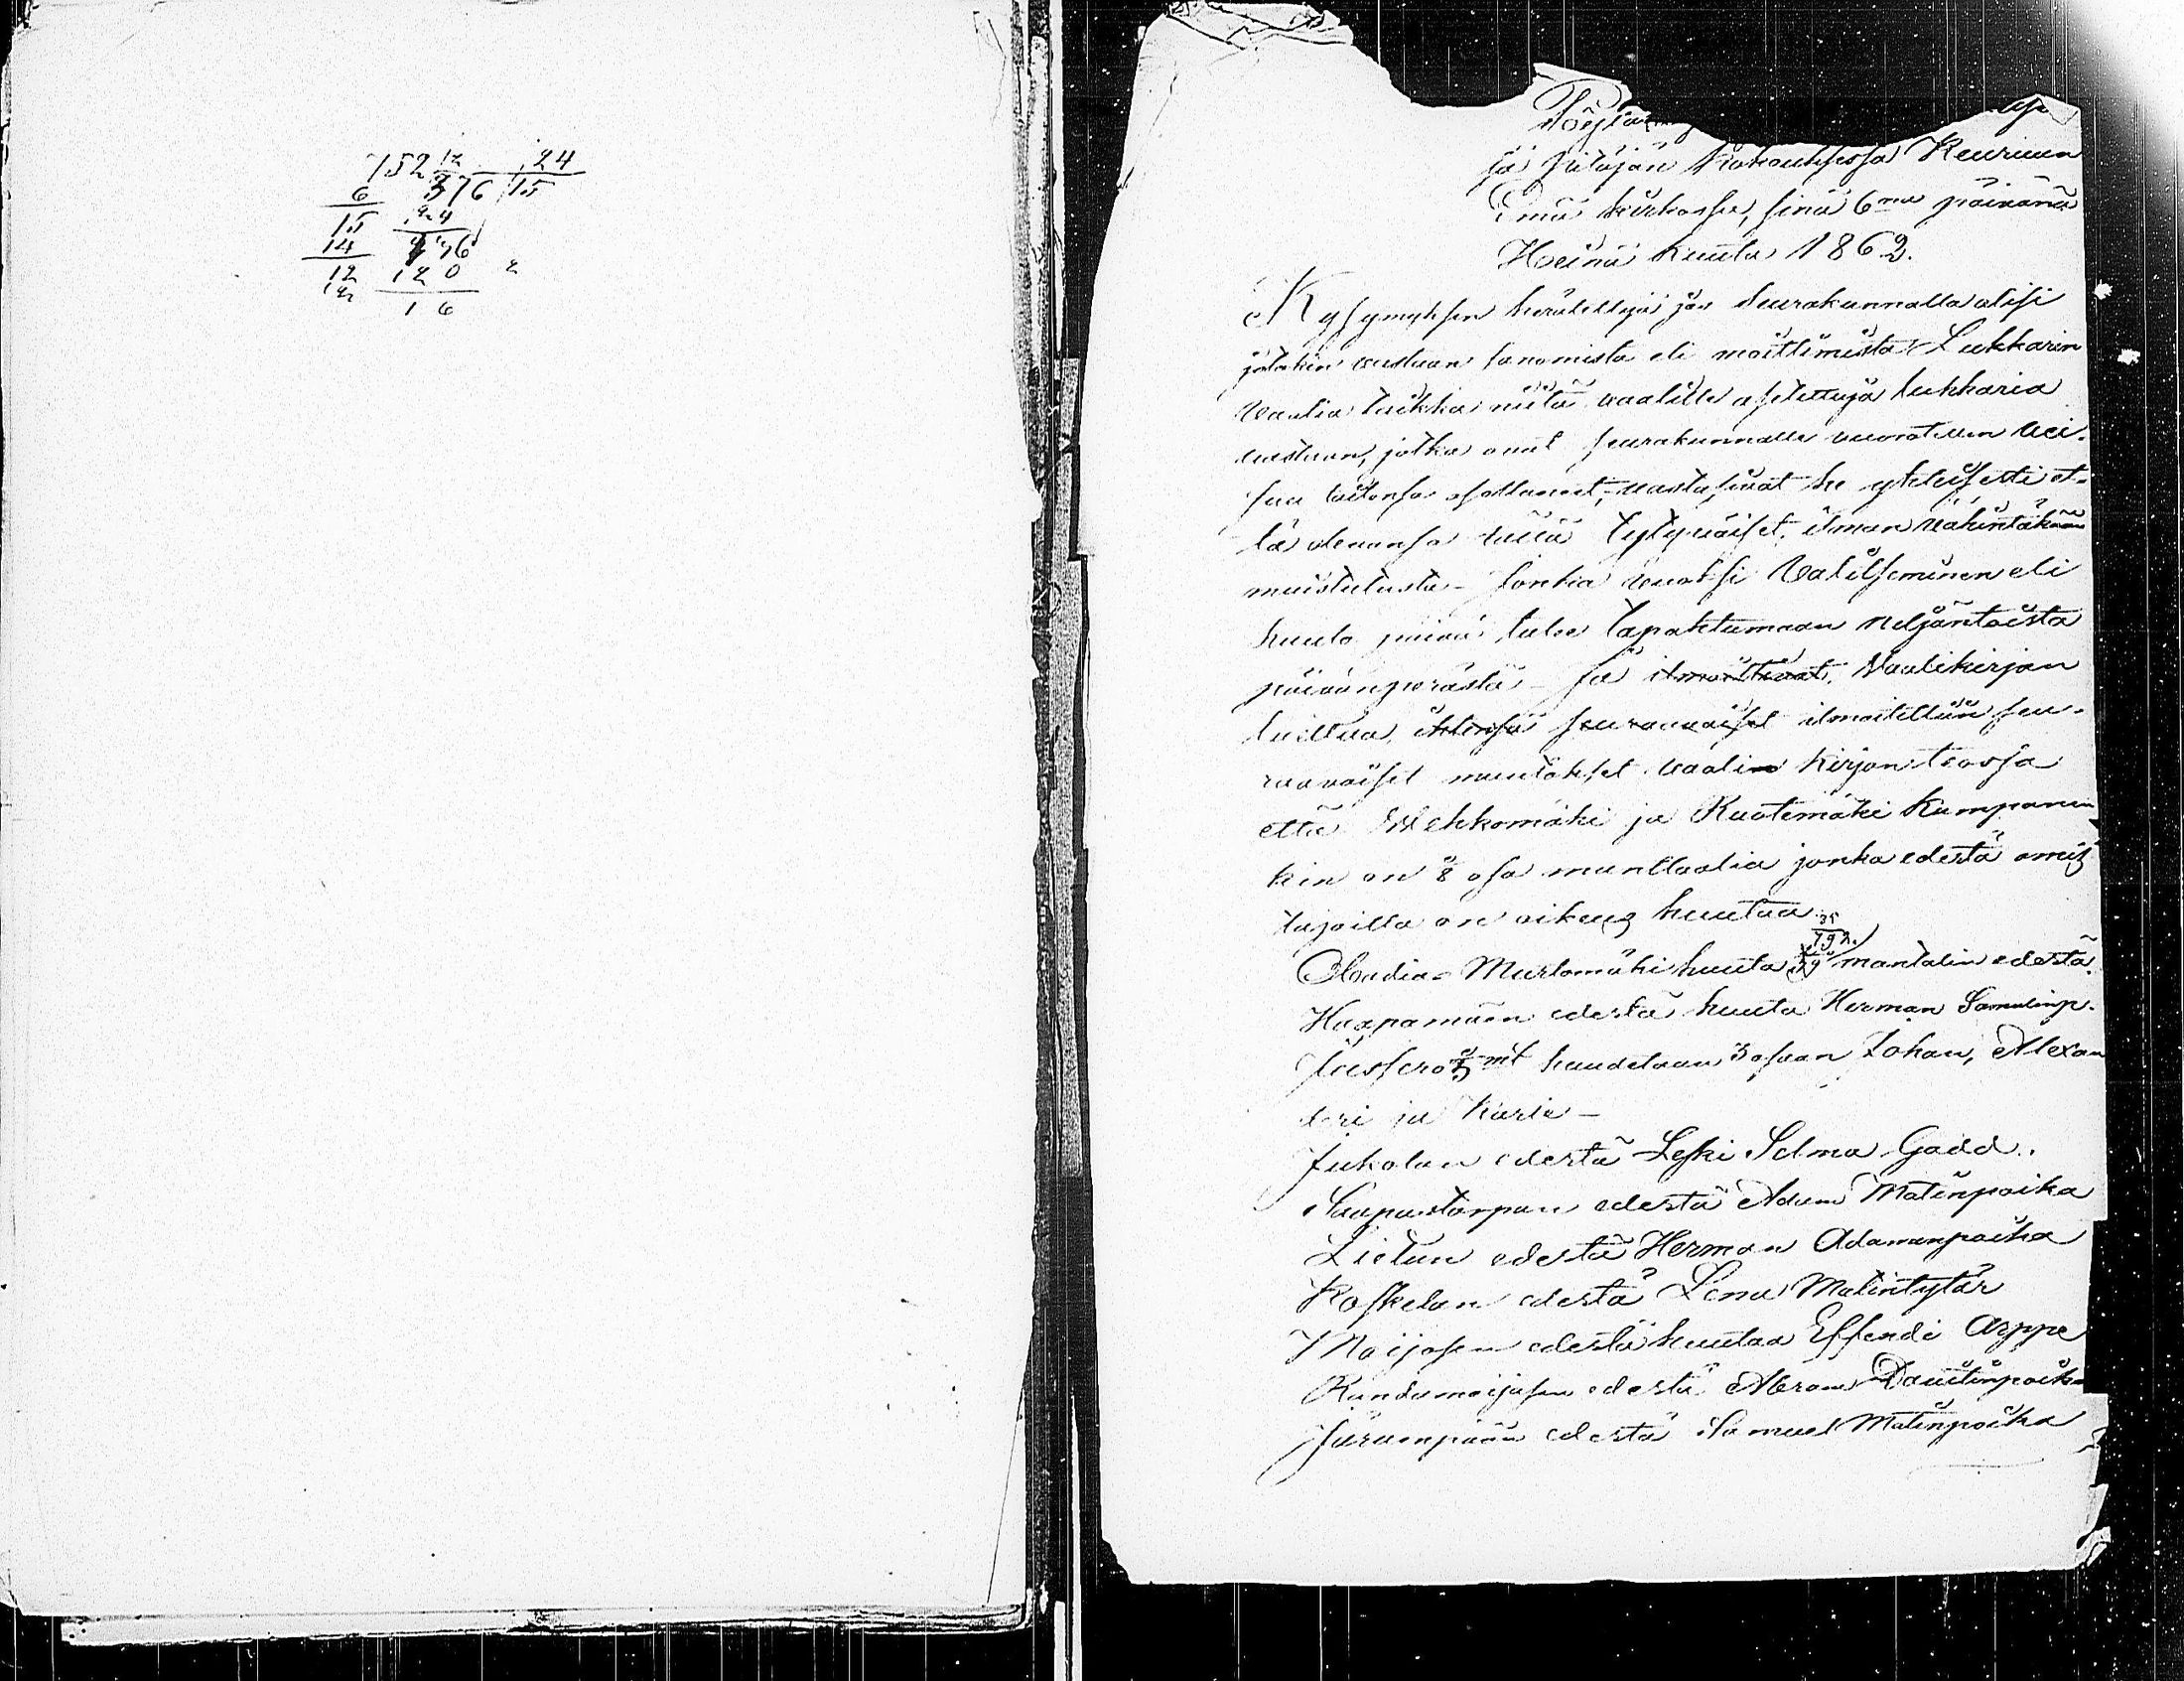 752 12 24
6 376 15
15 24
14 136
12 120 2
12 16
ja Pitäjän Kokouksessa Keuruun
Emä kirkossa, sinä 6na päivänä
Heinä kuuta 1862.
Kysymyksen herätettyä jos Seurakunnalla olisi
jotakin vastaan sanomista eli moittimista Lukkarin
Vaalia taikka niitä vaalille asetettuja lukkaria
vastaan, jotka ovat seurakunnalle vuorotellen vei-
suu taitonsa osottaneet, vastasivat he yhteisesti et-
tä olevansa tässä tytyväiset, ilman vähintäkään
muistutusta - Jonka vuoksi Valitseminen eli
huuto päivä tulee tapahtumaan neljäntoista
päivänperästä - ja ilmoittivat. Vaalikirjan
luettua, seuraavaiset ilmoitettiin seu-
raavaiset muutokset vaalin kirjan teossa
että Mehkomäki ja Ruotemäki Kumpanen
kin on 8 osa manttaalia jonka edestä omis
tajoilla on oikeus huutaa. 35
192.
Abradia - Murtomäki huuta mantalin edestä.
Haapamäen edestä huuta Herman Samulinp.
Jussero mt huudetaan 3 osaan Johan, Alexan
deri ja Karle -
Jukolan edestä Leski Selma Gadd.
Haapastarpan edestä Adam Matinpoika
Lietun edestä Herman Adamanpoika
Koskelan edestä Lena Matintytär
Moijosen edestä huutaa Effendi Arppe
Randamoijosen edestä Abram Dauitinpoika
Järvenpään edestä Samuel Matinpoika